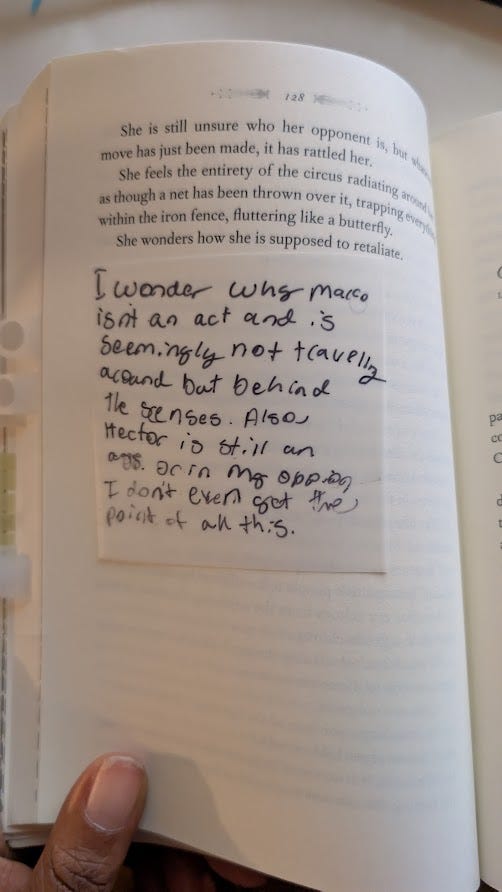 128
She is still unsure who her opponent is, but
move has just been made, it has rattled her.
She feels the entirety of the circus radiating around
as though a net has been thrown over it, trapping everything
within the iron fence, fluttering like a butterfly.
She wonders how she is supposed to retaliate.
I wonder why Marco
isnt an act and is
seemingly not travelly
around but behind
the senses. Also
Hector is still an
ass. or in my
I don't even get the
point of all this.